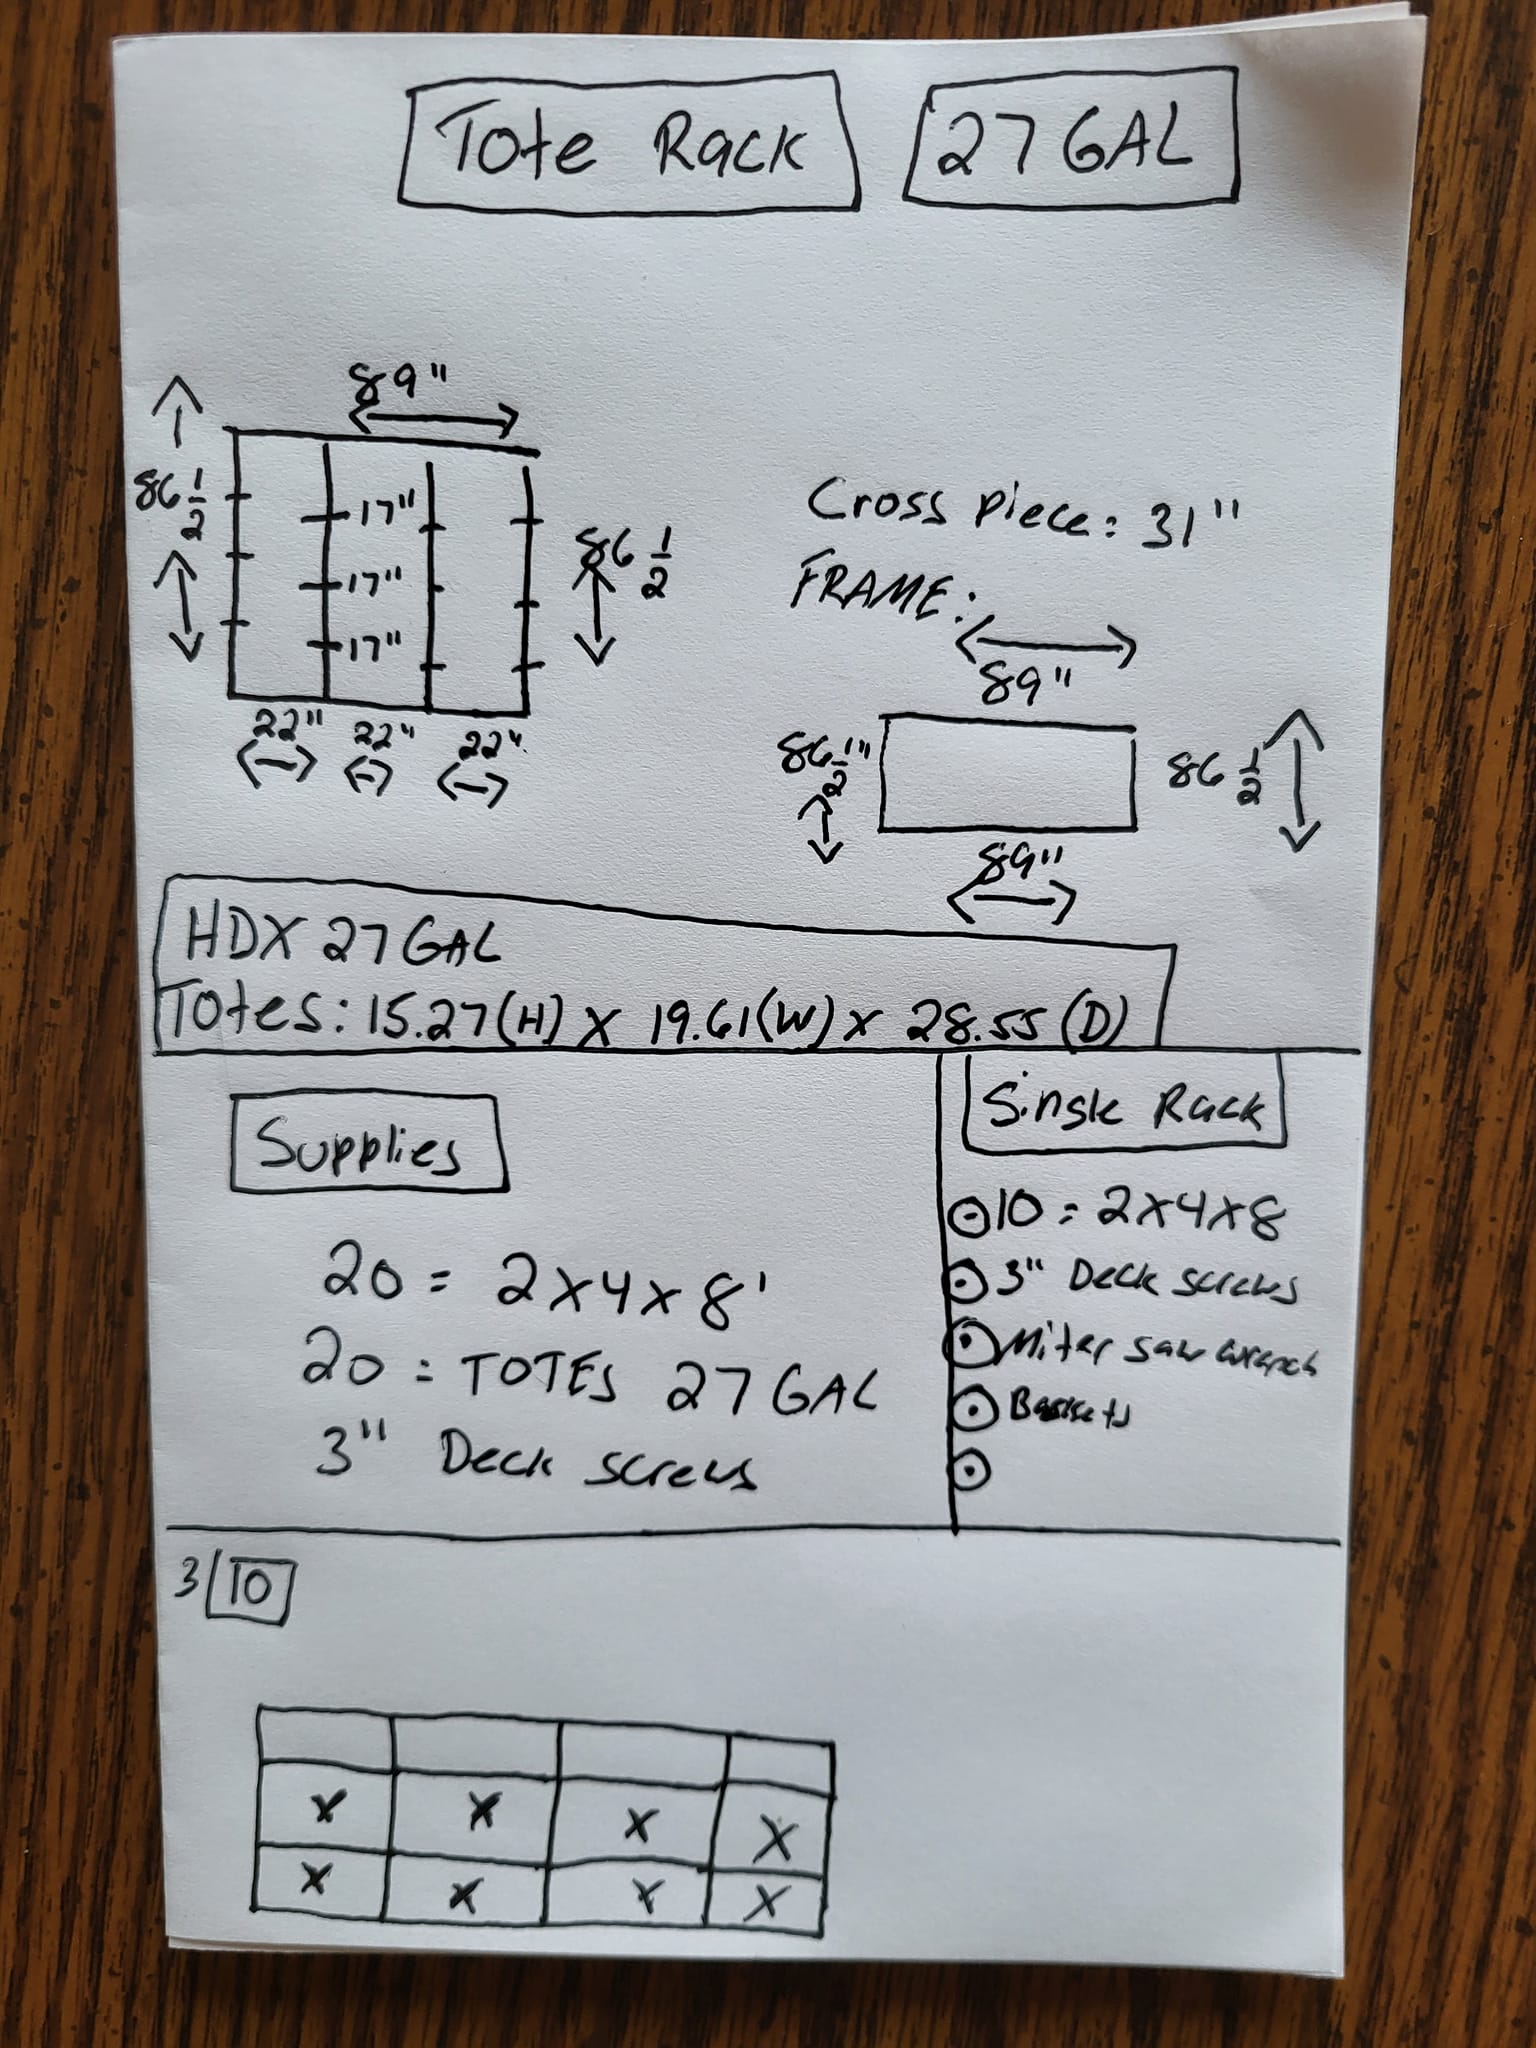 Tote Rack 27 GAL
89"
86 1/2
17"
17"
17"
86 1/2
22" 22" 22"
Cross piece: 31"
FRAME:
89"
86 1/2" 86 1/2
89"
HDX 27 GAL
Totes: 15.27(H) x 19.61(W) x 28.55(D)
Supplies
20 = 2x4x8'
20 = TOTES 27 GAL
3" Deck screws
Single Rack
10 = 2x4x8
3" Deck screws
Miter saw
Baskets
3/10
X X X X
X X X X